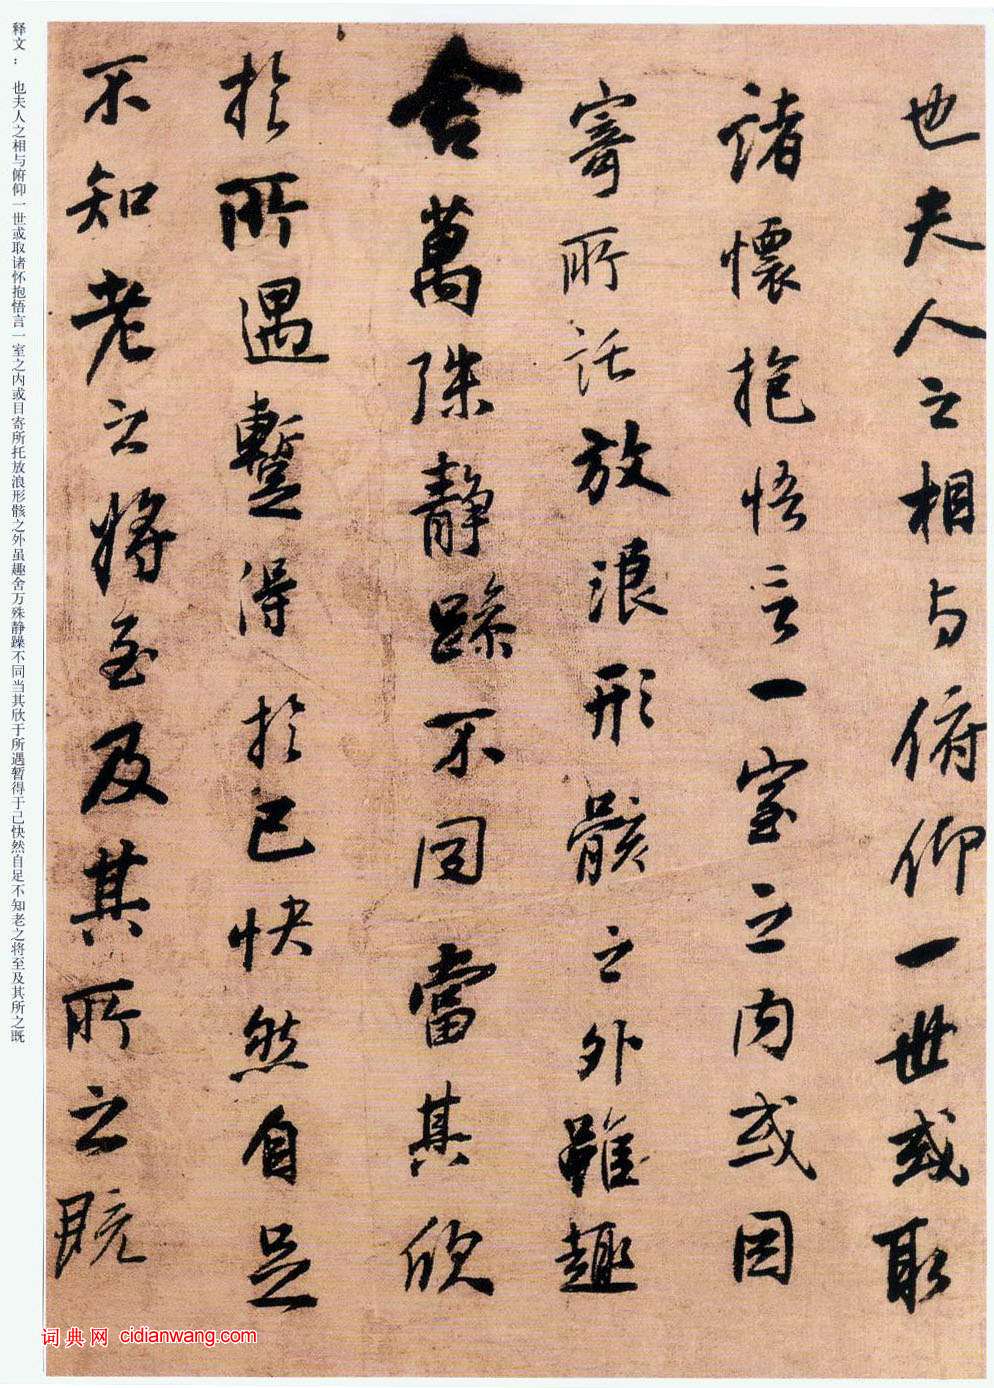 也夫人之相与俯仰一世或取
諸懷抱悟言一室之内或因
寄所託放浪形骸之外雖趣
舍萬殊静躁不同當其欣
於所遇蹔得於己快然自足
不知老之將至及其所之既
释文： 也夫人之相与俯仰一世或取诸怀抱悟言一室之内或目寄所托放浪形骸之外虽趣舍万殊静躁不同当其欣于所遇暂得于己快然自足不知老之将至及其所之既
词典网 cidianwang.com